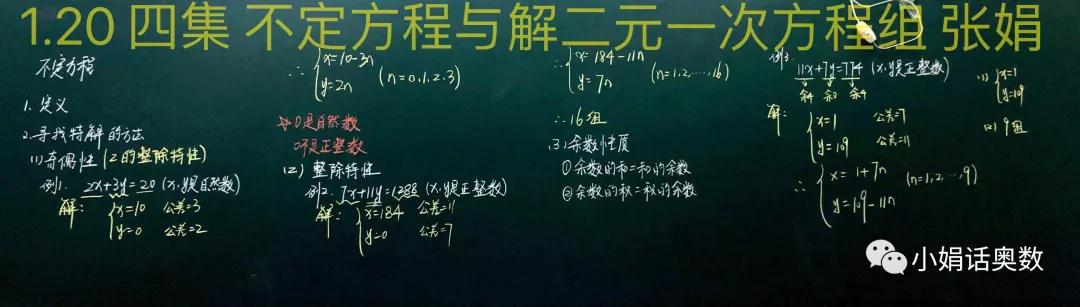 1.20 四集 不定方程与解二元一次方程组 张娟
不定方程
1. 定义
2. 寻找特解的方法
(1) 奇偶性 (2的整除特性)
例1. 2x+3y=20 (x,y是自然数)
解: {x=10 公差=3
y=0 公差=2
∴ {x=10-3n
y=2n (n=0.1.2.3)
0是自然数
0不是正整数
(2) 整除特性
例2. 7x+11y=1288 (x,y是正整数)
解: {x=184 公差=11
y=0 公差=7
∴ {x=184-11n
y=7n (n=1.2,…,16)
∴16组
(3) 余数性质
①余数的和=和的余数
②余数的积=积的余数
例3.
11x+7y=774 (x,y是正整数)
余4 余0 余4
解: {x=1 公差=7
y=109 公差=11
∴ {x=1+7n
y=109-11n (n=1,2,…,9)
(1) {x=1
y=109
(2) 9组
小娟话奥数